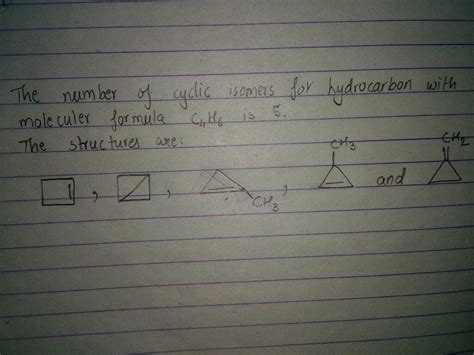 The number of cyclic isomers for hydrocarbon with
moleculer formula C4H6 is 5.
The structures are:
CH3
CH2
, , , and
CH3